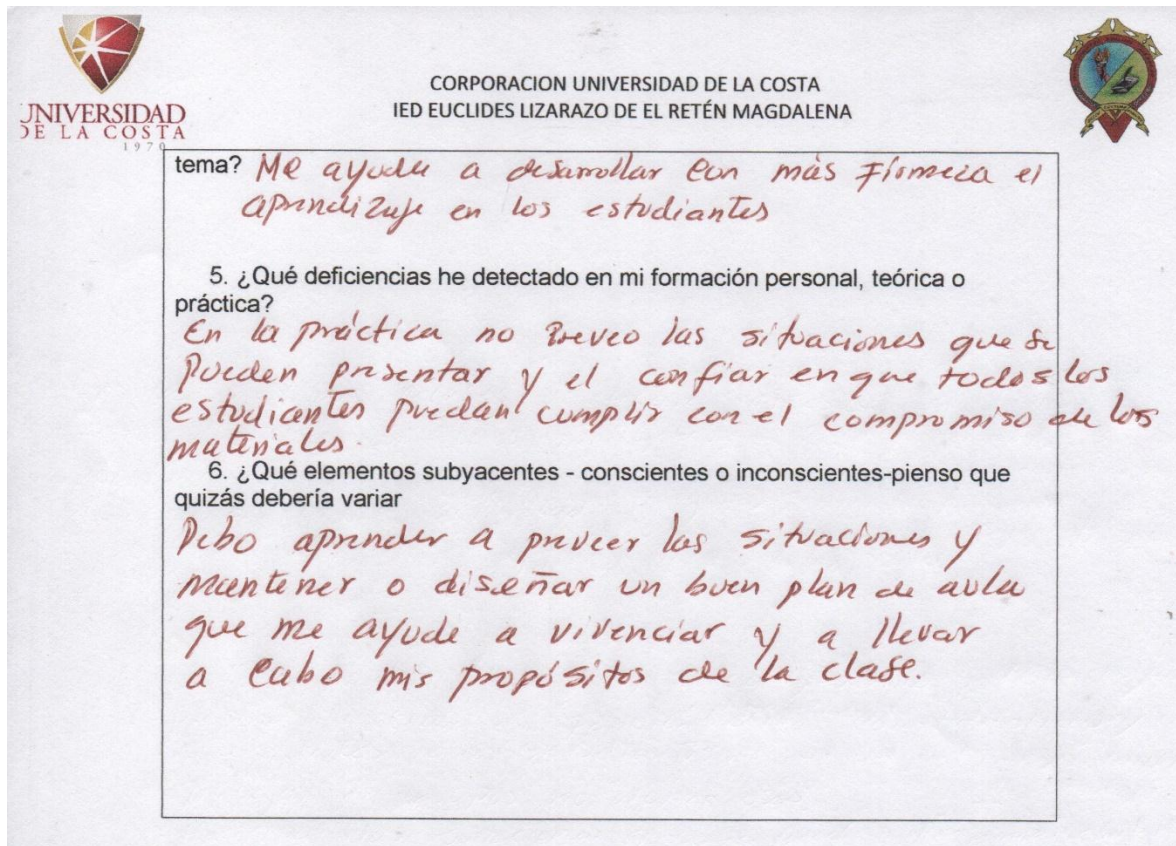 CORPORACION UNIVERSIDAD DE LA COSTA
IED EUCLIDES LIZARAZO DE EL RETÉN MAGDALENA
UNIVERSIDAD
DE LA COSTA
1970
tema? Me ayuda a desarrollar con más Firmeza el
aprendizaje en los estudiantes
5. ¿Qué deficiencias he detectado en mi formación personal, teórica o
práctica?
En la práctica no Preveo las situaciones que se
Pueden presentar y el confiar en que todos los
estudiantes puedan cumplir con el compromiso de los
materiales.
6. ¿Qué elementos subyacentes - conscientes o inconscientes-pienso que
quizás debería variar
Debo aprender a preveer las situaciones y
mantener o diseñar un buen plan de aula
que me ayude a vivenciar y a llevar
a cabo mis propósitos de la clase.